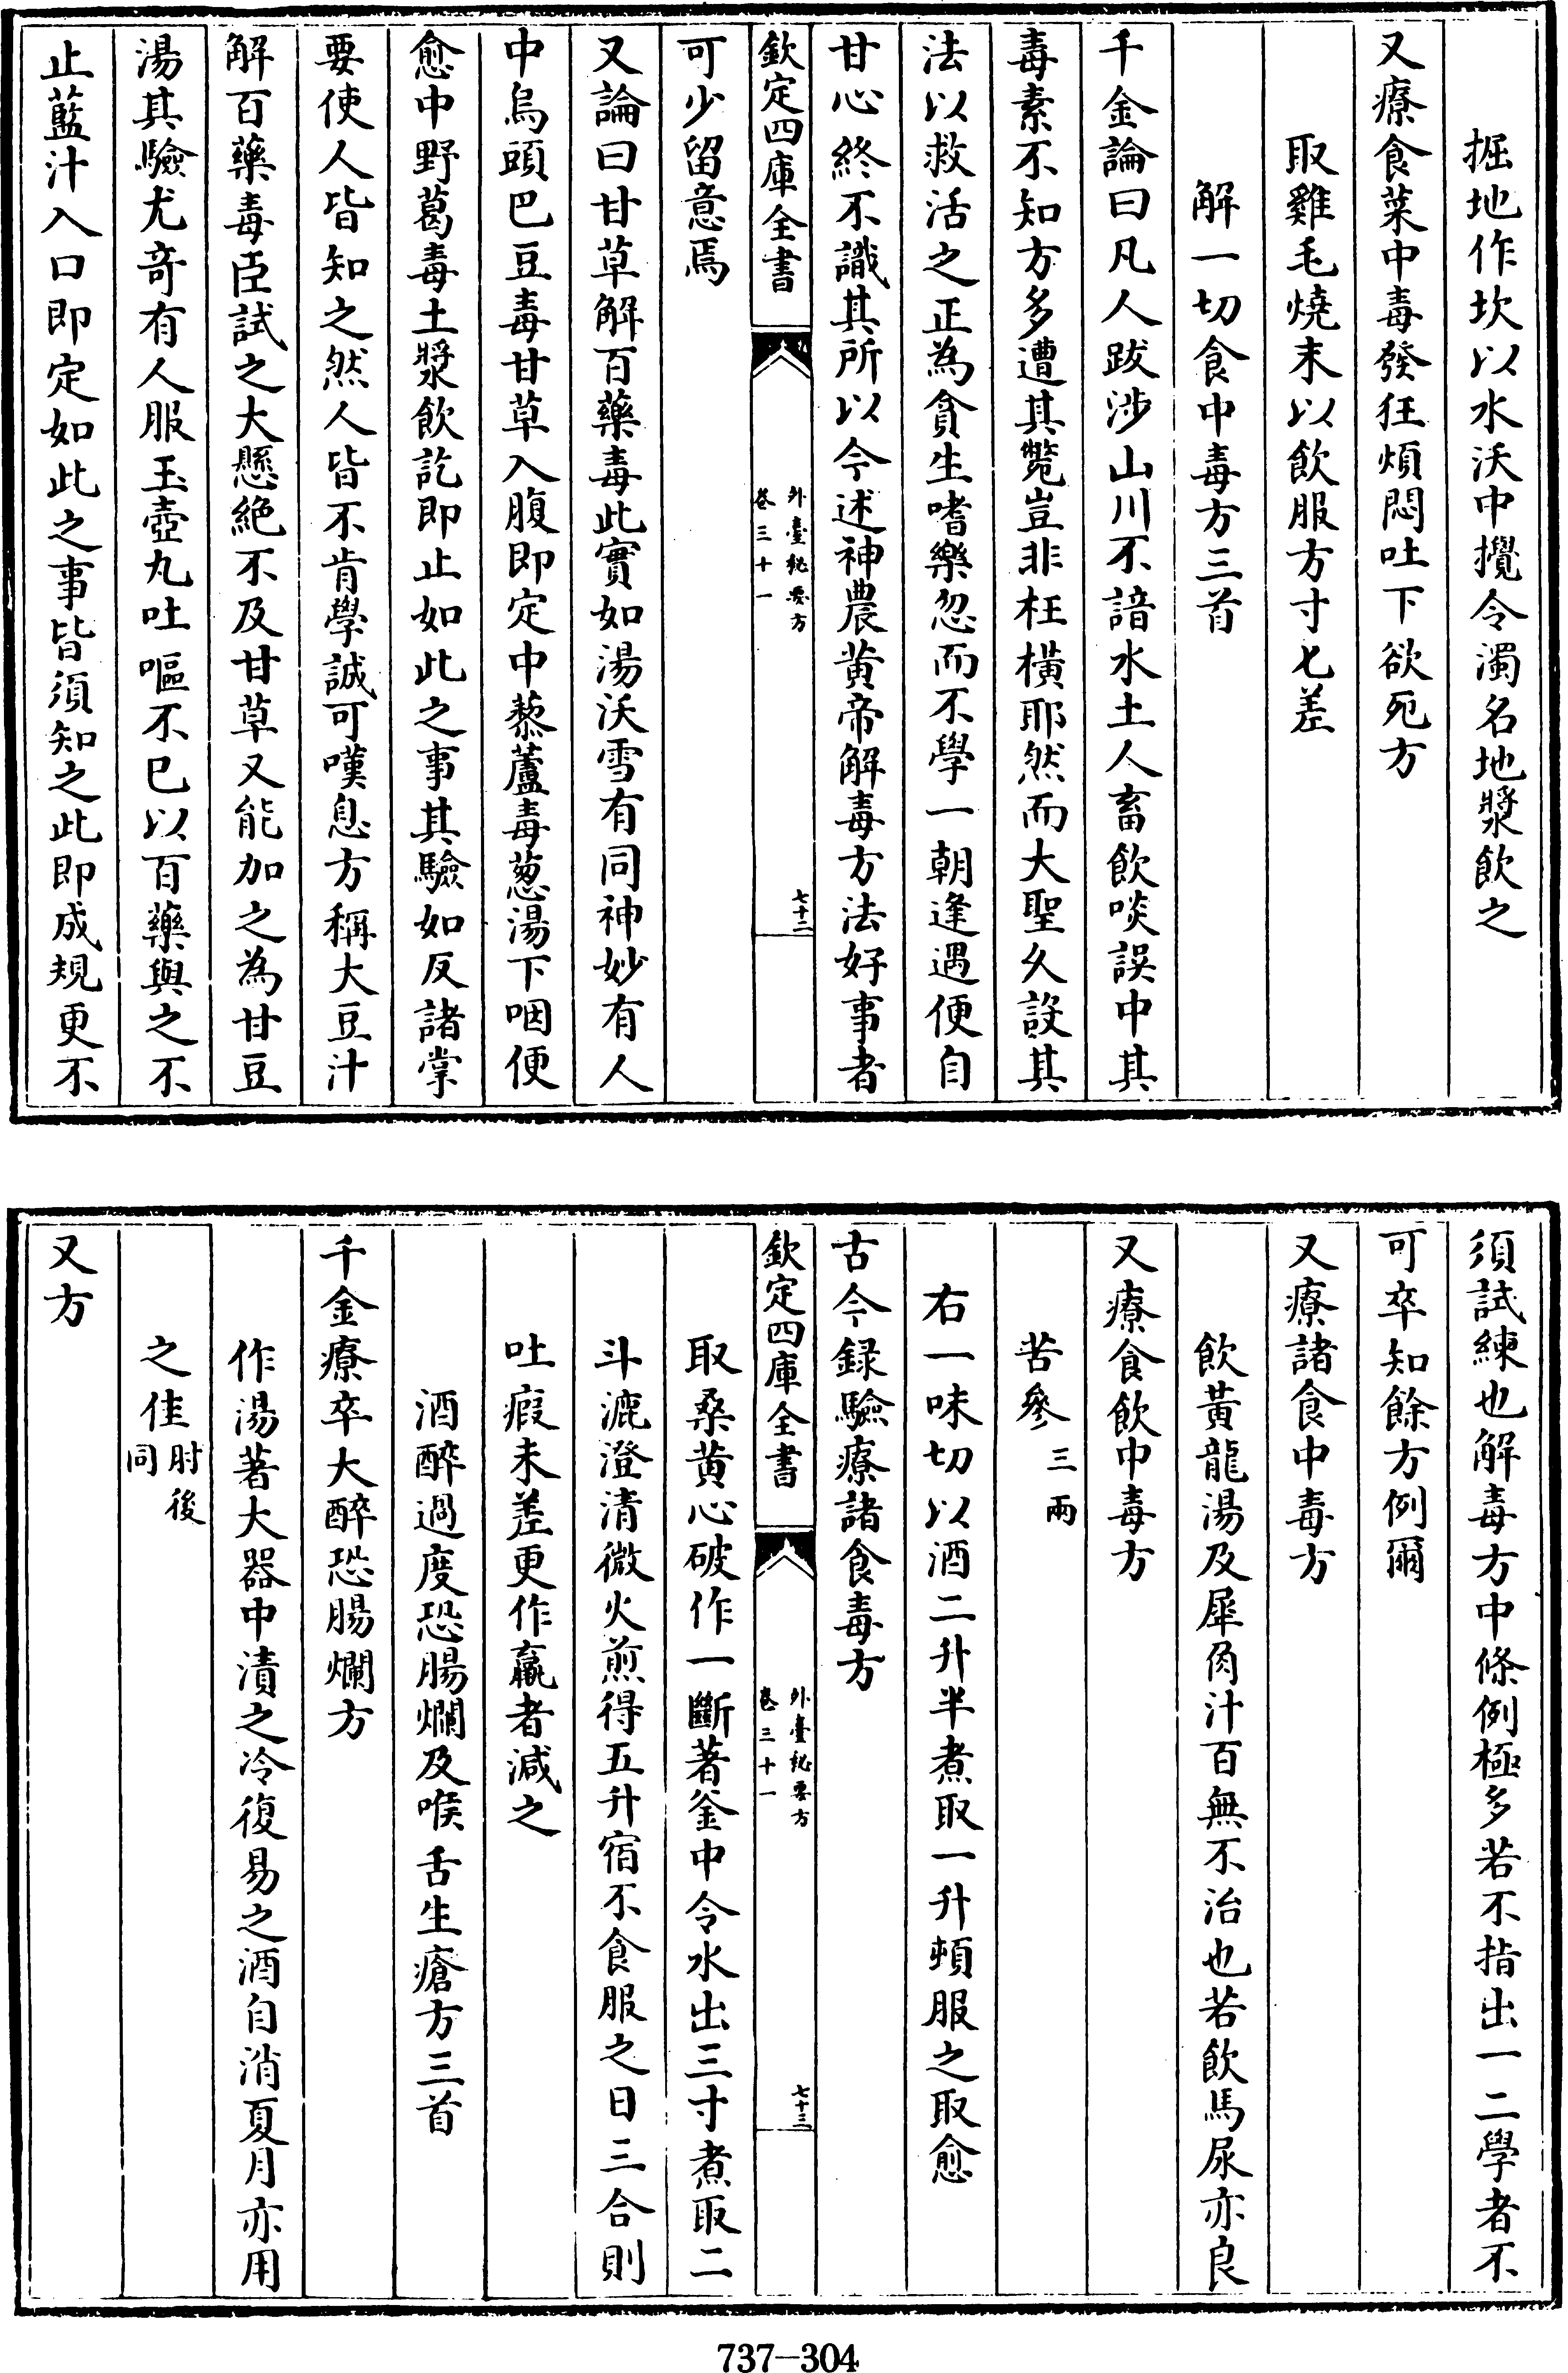 掘地作坎以水沃中攪令濁名地漿飲之
又療食菜中毒發狂煩悶吐下欲死方
取雞毛燒末以飲服方寸匕差
解一切食中毒方三首
千金論曰凡人跋涉山川不諳水土人畜飲啖誤中其
毒素不知方多遭其斃豈非枉橫耶然而大聖久設其
法以救活之正為貪生嗜樂忽而不學一朝逢遇便自
甘心終不識其所以今述神農黃帝解毒方法好事者
欽定四庫全書
外臺秘要方
卷三十一
七十二
可少留意焉
又論曰甘草解百藥毒此實如湯沃雪有同神妙有人
中烏頭巴豆毒甘草入腹即定中藜蘆毒葱湯下咽便
愈中野葛毒土漿飲訖即止如此之事其驗如反諸掌
要使人皆知之然人皆不肯學誠可嘆息方稱大豆汁
解百藥毒臣試之大懸絕不及甘草又能加之為甘豆
湯其驗尤奇有人服玉壺丸吐嘔不已以百藥與之不
止藍汁入口即定如此之事皆須知之此即成規更不
須試練也解毒方中條例極多若不指出一二學者不
可卒知餘方例爾
又療諸食中毒方
飲黃龍湯及犀角汁百無不治也若飲馬尿亦良
又療食飲中毒方
苦參三兩
右一味切以酒二升半煮取一升頓服之取愈
古今錄驗療諸食毒方
欽定四庫全書
外臺秘要方
卷三十一
七十三
取桑黃心破作一斷著釜中令水出三寸煮取二
斗漉澄清微火煎得五升宿不食服之日三合則
吐瘕未差更作羸者減之
酒醉過度恐腸爛及喉舌生瘡方三首
千金療卒大醉恐腸爛方
作湯著大器中漬之冷復易之酒自消夏月亦用
之佳肘後同
又方
737-304